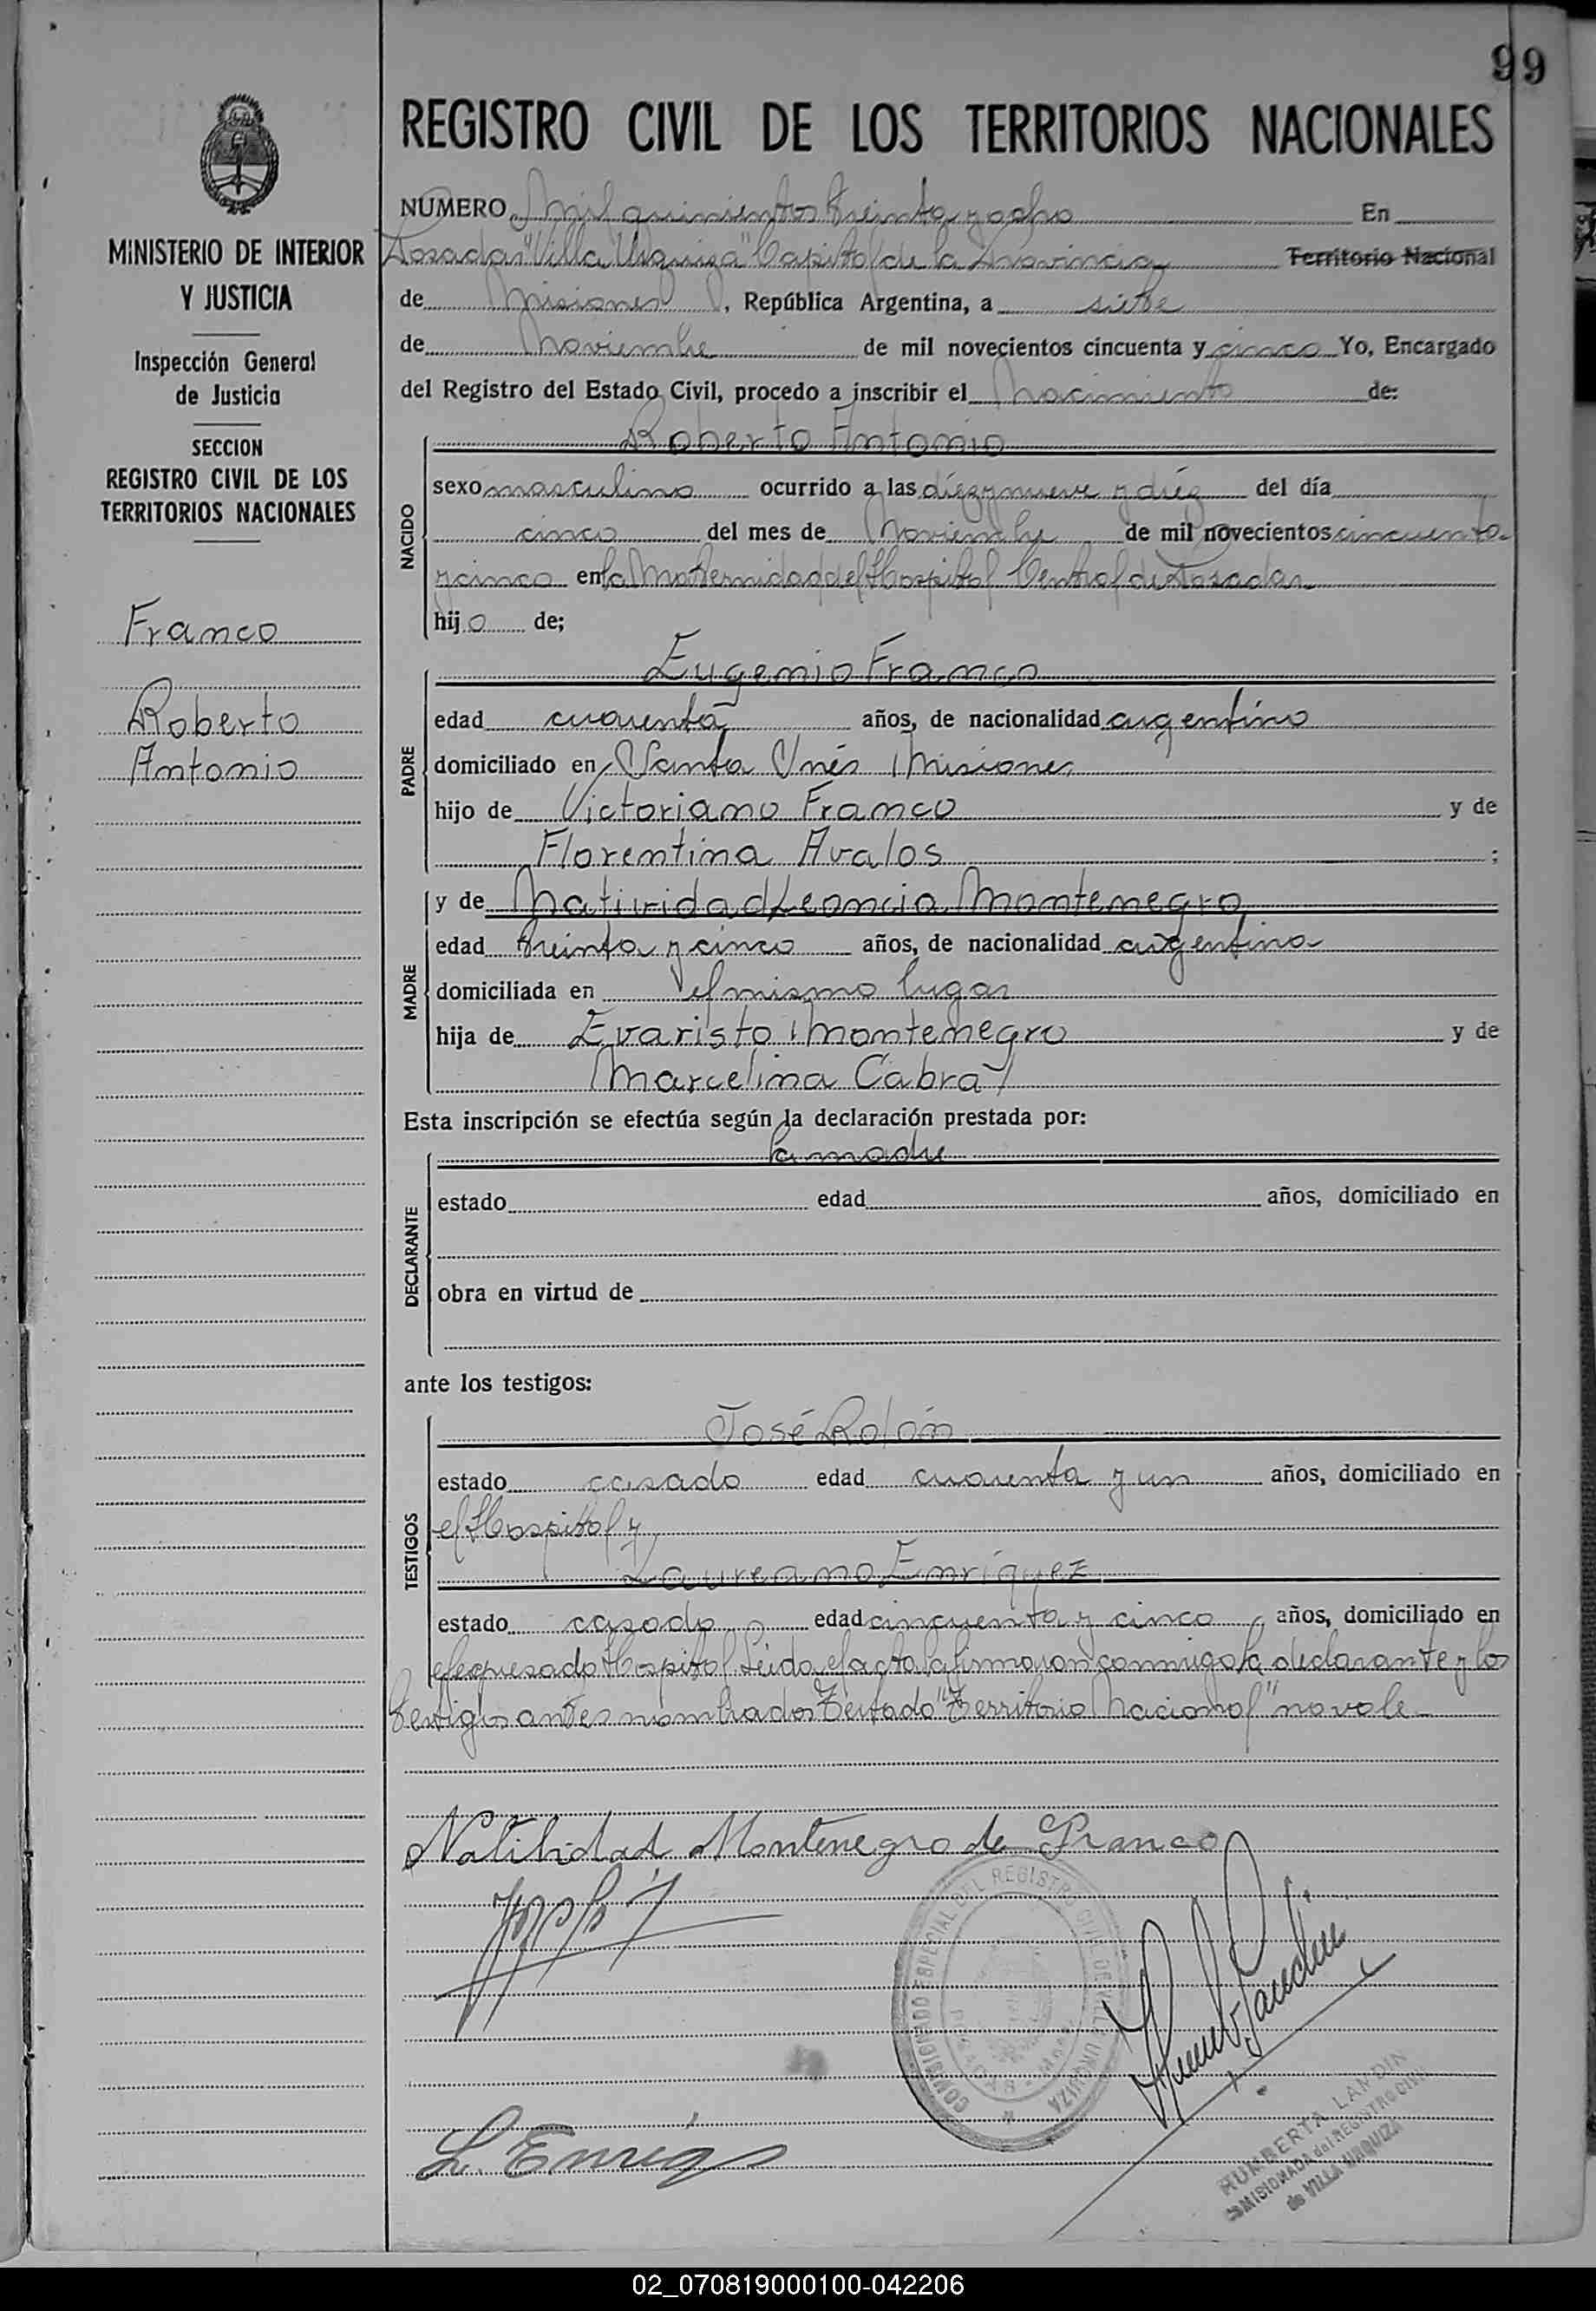 99
REGISTRO CIVIL DE LOS TERRITORIOS NACIONALES
MINISTERIO DE INTERIOR
Y JUSTICIA
Inspección General
de Justicia
SECCION
REGISTRO CIVIL DE LOS
TERRITORIOS NACIONALES
Franco
Roberto
Antonio
NUMERO Mil quinientos treinta y ocho En
Posadas "Villa Urquiza" Capital de la Provincia Territorio Nacional
de Misiones, República Argentina, a siete
de Noviembre de mil novecientos cincuenta y cinco Yo, Encargado
del Registro del Estado Civil, procedo a inscribir el Nacimiento de:
NACIDO
Roberto Antonio
sexo masculino ocurrido a las diez y nueve y diez del día
cinco del mes de Noviembre de mil novecientos cincuenta
y cinco en la Maternidad del Hospital Central de Posadas
hijo de;
PADRE
Eugenio Franco
edad cuarenta años, de nacionalidad argentino
domiciliado en Santa Inés Misiones
hijo de Victoriano Franco y de
Florentina Avalos ;
MADRE
y de Natividad Leoncia Montenegro
edad treinta y cinco años, de nacionalidad argentina
domiciliada en el mismo lugar
hija de Evaristo Montenegro y de
Marcelina Cabral
Esta inscripción se efectúa según la declaración prestada por:
DECLARANTE
la madre
estado edad años, domiciliado en
obra en virtud de
ante los testigos:
TESTIGOS
José Rolón
estado casado edad cuarenta y un años, domiciliado en
el Hospital y
Laureano Enríquez
estado casado edad cincuenta y cinco, años, domiciliado en
el expresado Hospital. Leida el acta la firmaron conmigo la declarante y los
testigos antes nombrados Testado "Territorio Nacional" no vale
Natibidad Montenegro de Franco
COMISIONADO ESPECIAL DEL REGISTRO CIVIL DE VILLA URQUIZA
POSADAS
L. Enriq
HUMBERTA LANDIN
COMISIONADA del REGISTRO CIVIL
de VILLA URQUIZA
02_070819000100-042206